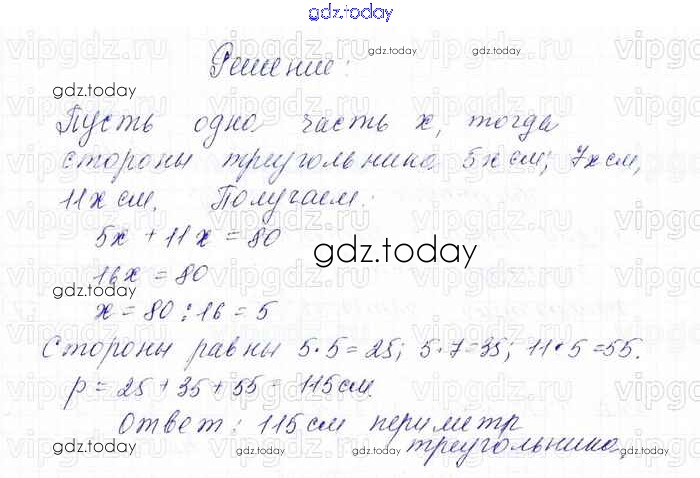 gdz.today
Решение:
Пусть одна часть x, тогда
стороны треугольника 5x см, 7x см,
11x см. Получаем:
5x + 11x = 80
16x = 80
x = 80 : 16 = 5
Стороны равны 5·5=25; 5·7=35; 11·5=55.
p = 25 + 35 + 55 = 115 см.
Ответ: 115 см периметр
треугольника.
gdz.today
gdz.today
gdz.today
gdz.today
gdz.today
gdz.today
gdz.today
gdz.today
gdz.today
vipgdz.ru